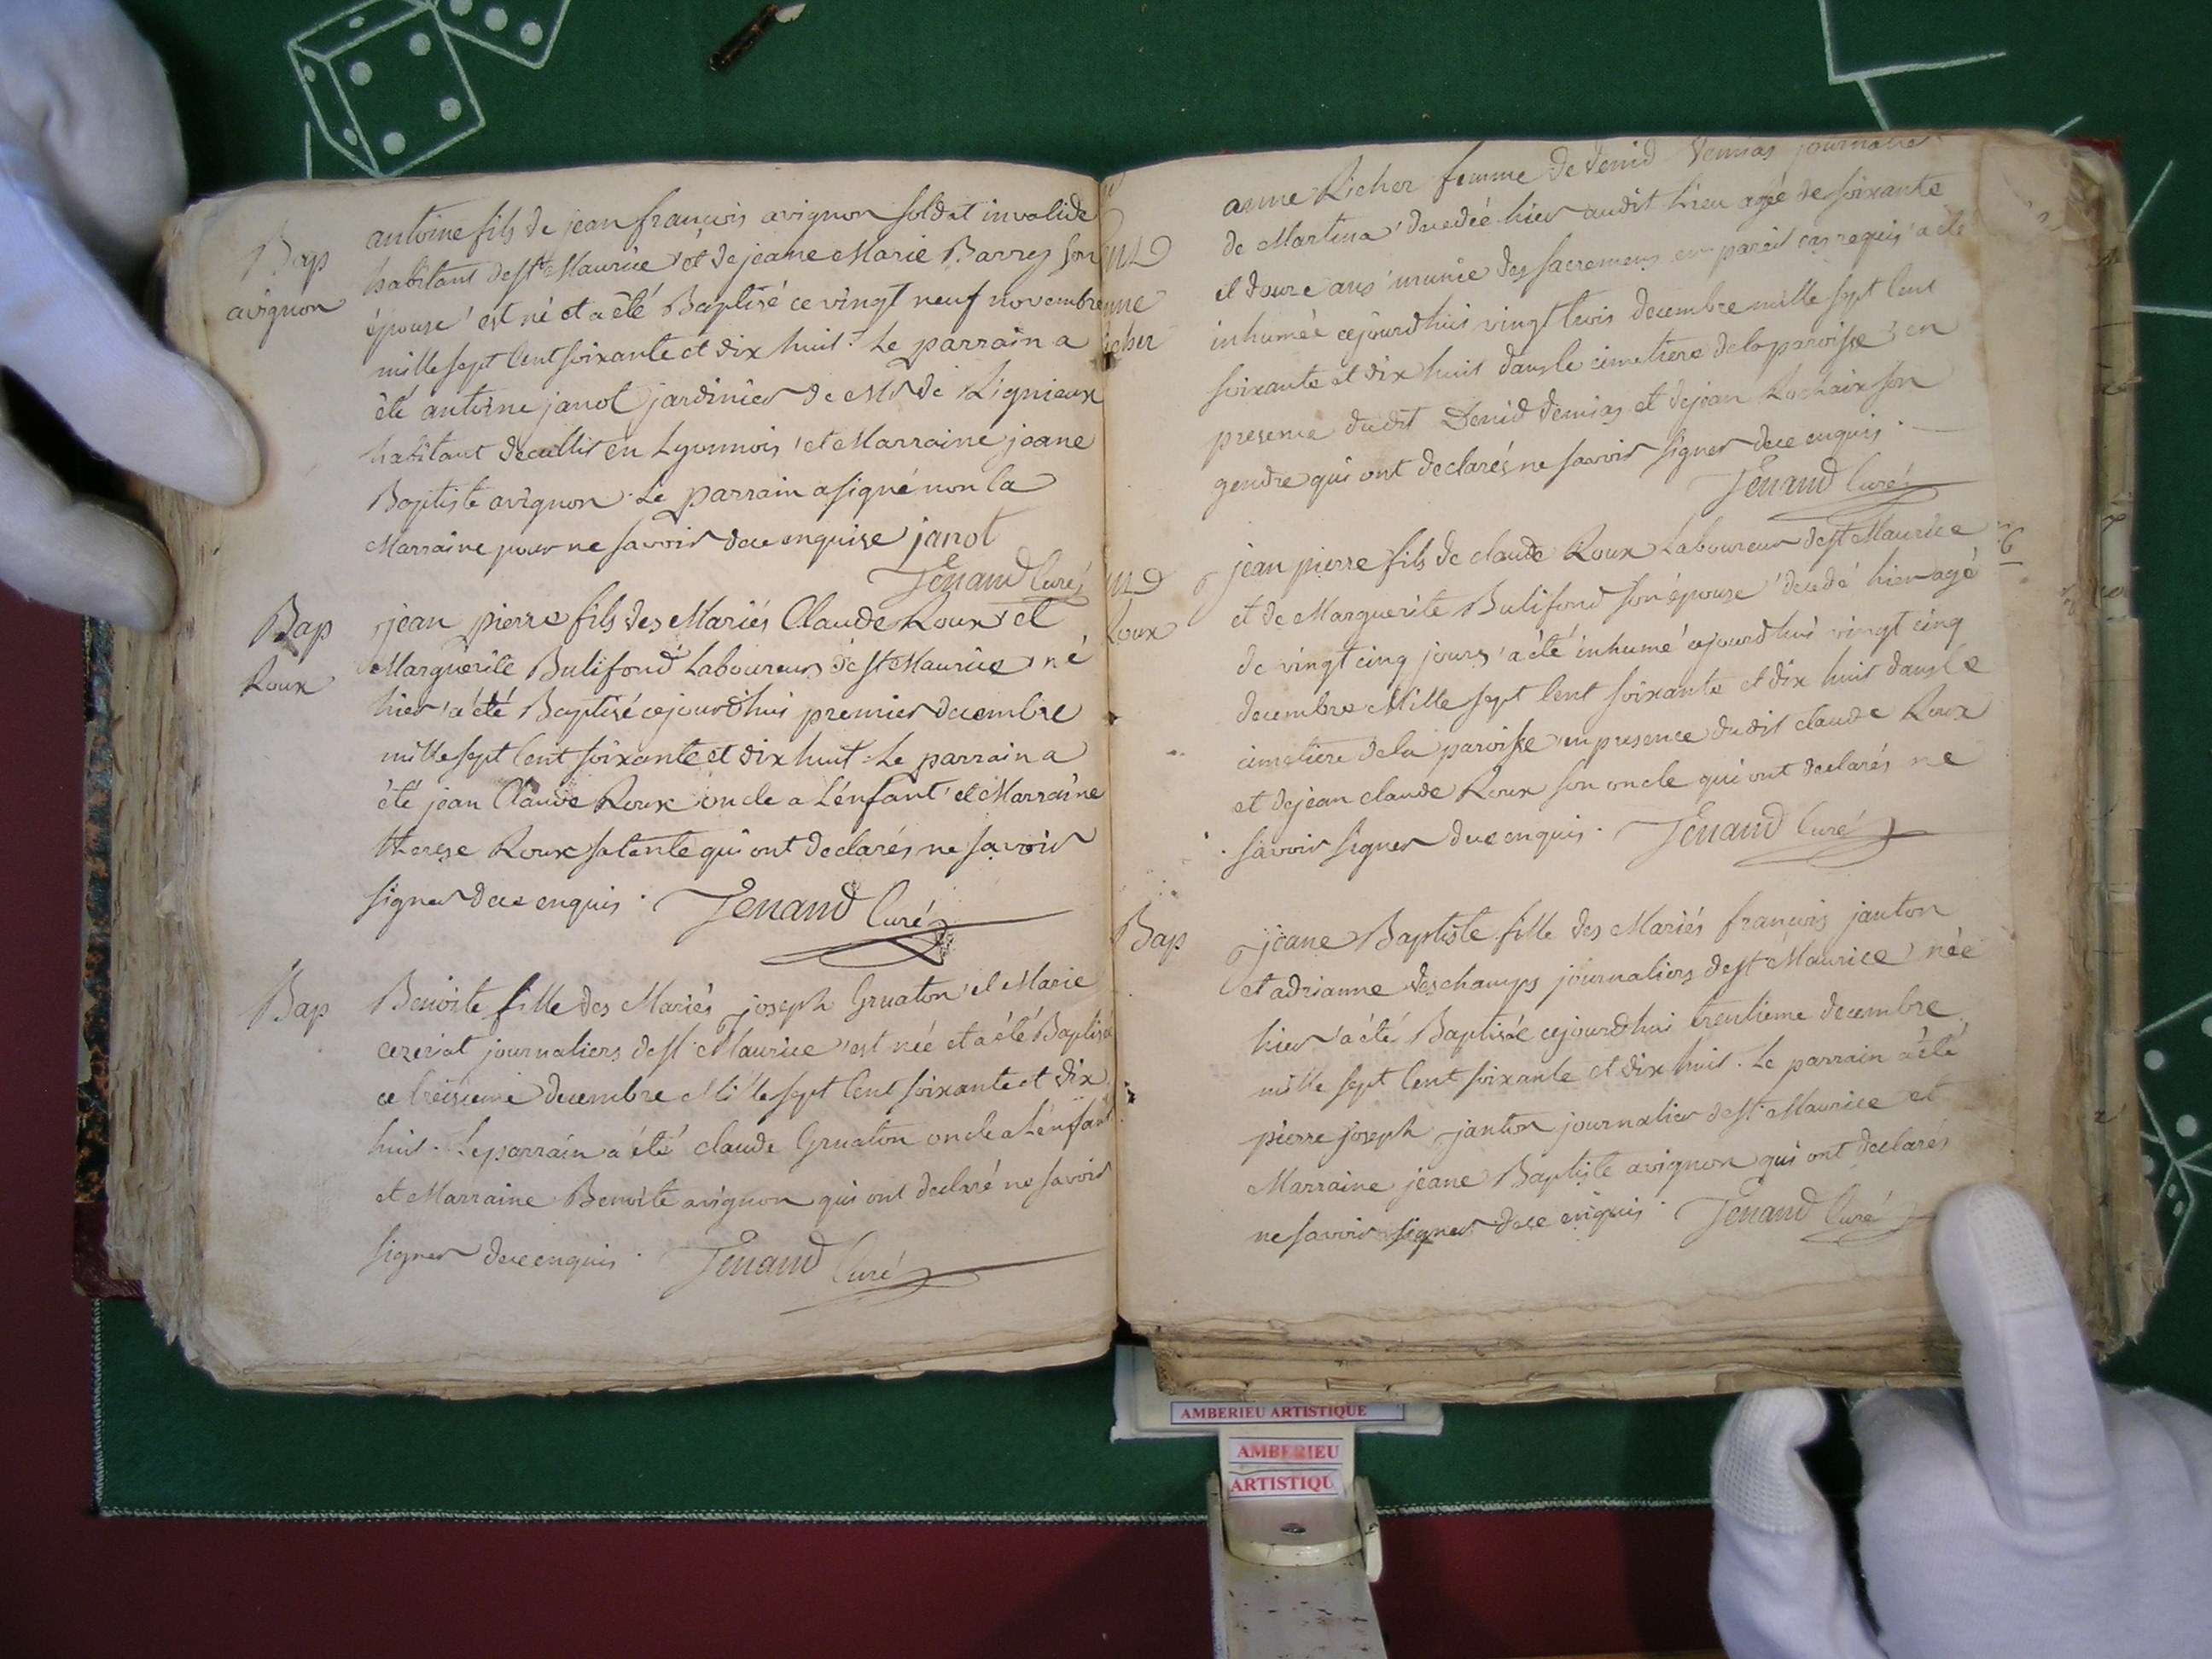 Bap
avignon
antoine fils de jean françois avignon soldat invalide
habitant de st Maurice et de jeane Marie Barrey son
épouse est né et a été Baptisé ce vingt neuf novembre
mille sept Cent soixante et dix huit. Le parrain a
été antoine janot jardinier de Mr de Lignieux
habitant de en Lyonnois et Marraine jeane
Baptiste avignon. Le parrain a signé non la
Marraine pour ne savoir de ce enquise janot
Tenand Curé
Bap
Roux
jean pierre fils des Mariés Claude Roux et
Marguerite Bulifond Laboureurs de st Maurice né
hier a été Baptisé cejourdhui premier decembre
mille sept Cent soixante et dix huit. Le parrain a
été jean Claude Roux oncle a L'énfant et Marraine
therese Roux sa tante qui ont declarés ne savoir
signer de ce enquis. Tenand Curé
Bap
Benoite fille des Mariés joseph Gruaton et Marie
cezeriat journaliers de st Maurice est née et a été Baptisé
ce treisieme decembre Mille sept Cent soixante et dix
huit. Le parrain a été claude Gruaton oncle a L'énfant
et Marraine Benoite avignon qui ont declaré ne savoir
signer de ce enquis. Tenand Curé
icher
anne Richer femme de denid demias journalier
de Martina decedée hier audit Lieu agée de soixante
et douze ans munie des sacremens en pareil cas requis a été
inhumée cejourdhui vingt trois decembre mille sept Cent
soixante et dix huit dans le cimetiere de la paroisse en
presence dudit Denid demias et de jean Rochaix son
gendre qui ont declarés ne savoir signer de ce enquis.
Tenand Curé
Roux
jean pierre fils de claude Roux Laboureur de st Maurice
et de Marguerite Bulifond son épouse decedé hier agé
de vingt cinq jours a été inhumé cejourdhui vingt cinq
decembre Mille sept Cent soixante et dix huit dans le
cimetiere de la paroisse en presence dudit claude Roux
et de jean claude Roux son oncle qui ont declarés ne
savoir signer de ce enquis. Tenand Curé
Bap
jeane Baptiste fille des Mariés françois janton
et adrianne deschamps journaliers de st Maurice née
hier a été Baptisée cejourdhui trentieme decembre
mille sept Cent soixante et dix huit. Le parrain a été
pierre joseph janton journalier de st Maurice et
Marraine jeane Baptiste avignon qui ont declarés
ne savoir signer de ce enquis. Tenand Curé
AMBERIEU ARTISTIQUE
AMBERIEU
ARTISTIQU